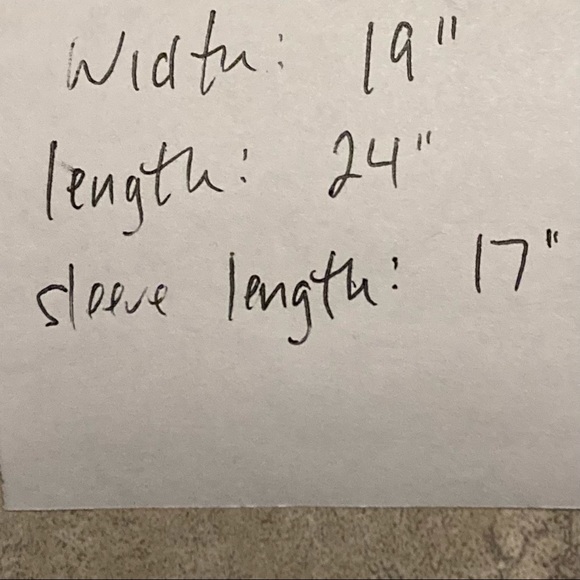 Width: 19"
length: 24"
sleeve length: 17"